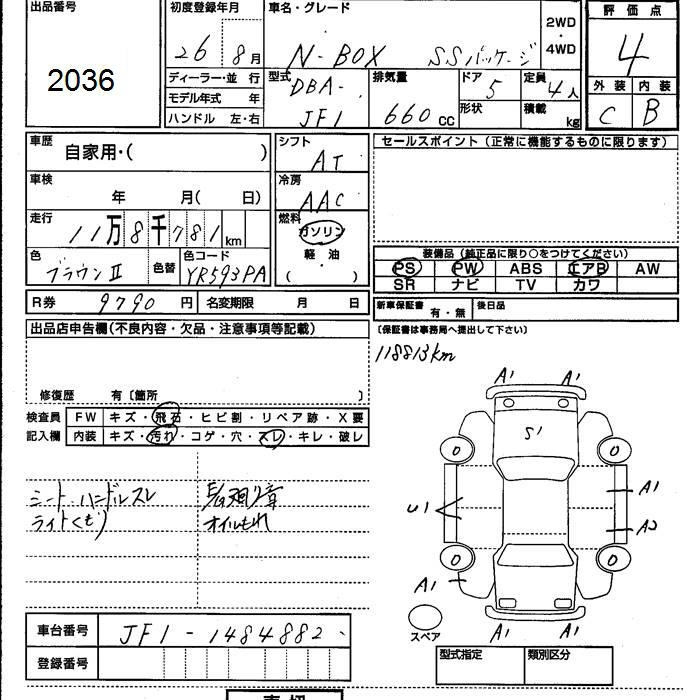 出品番号
2036
初度登録年月
26 8月
車名・グレード
N-BOX SSパッケージ
2WD
・
4WD
評価点
4
外装 内装
C B
ディーラー・並 行
モデル年式 年
ハンドル 左・右
型式
DBA-
JF1
排気量
660cc
ドア
5
定員
4人
形状
積載
kg
車歴
自家用・( )
シフト
AT
車検
年 月( 日)
冷房
AAC
走行
11万8千781km
燃料
ガソリン
軽油
・
( )
色
ブラウンII
色替
色コード
YR593PA
R券 9790円
名変期限 月 日
セールスポイント(正常に機能するものに限ります)
装備品(純正品に限り○をつけてください)
PS PW ABS エアB AW
SR ナビ TV カワ
新車保証書
有・無
後日品
〔保証書は事務局へ提出して下さい〕
118813km
出品店申告欄(不良内容・欠品・注意事項等記載)
修復歴 有〔箇所 〕
検査員
記入欄
FW キズ・飛石・ヒビ割・リペア跡・X要
内装 キズ・汚れ・コゲ・穴・スレ・キレ・破レ
シート、ハンドルスレ
ライトくもり
オイルもれ
A1 A1
S1
U1
A1
A2
A1
A1 A1
スペア
車台番号 JF1-1484882
登録番号
型式指定
類別区分